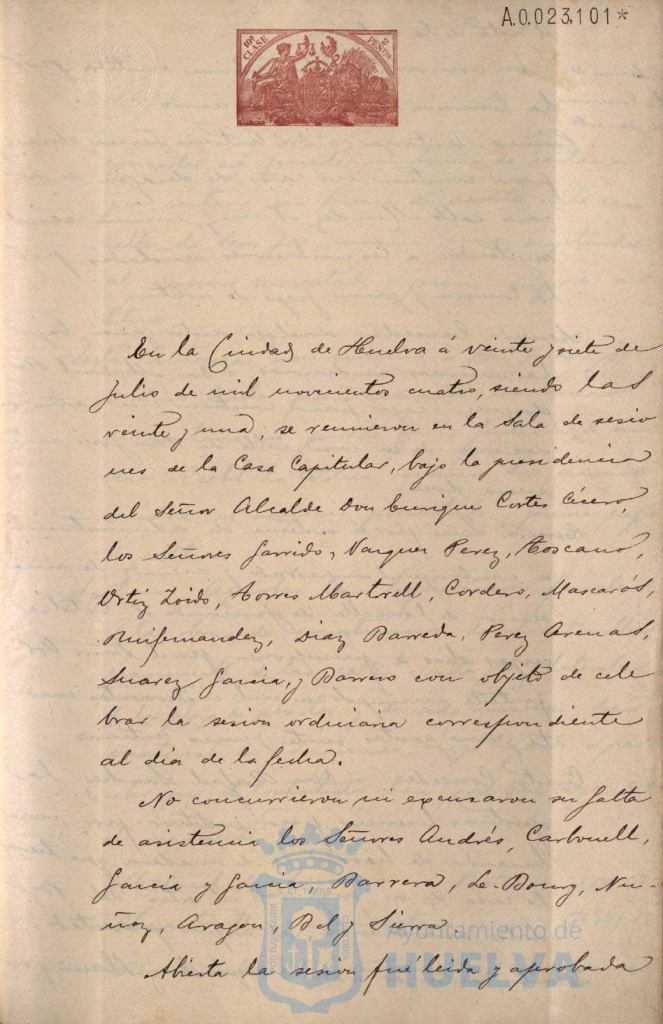 A.0.023,101*
10ª CLASE
2 PESTAS
En la Ciudad de Huelva á veinte y siete de
Julio de mil novecientos cuatro, siendo las
veinte y una, se reunieron en la Sala de sesio
nes de la Casa Capitular, bajo la presidencia
del Señor Alcalde Don Enrique Cortes Cícero,
los Señores Garrido, Vazquez Perez, Toscano,
Ortiz Zoido, Torres Martrell, Cordero, Mascarós,
Ruifernandez, Diaz Barreda, Perez Arenas,
Suarez Garcia, y Barrero con objeto de cele
brar la sesion ordinaria correspondiente
al dia de la fecha.
No concurrieron ni excusaron su falta
de asistencia los Señores Andrés, Carbonell,
Garcia y Garcia, Barrera, Le-Bourg, Nu-
ñez, Aragon, Bel y Sierra.
Abierta la sesion fué leida y aprobada
Ayuntamiento de
HUELVA